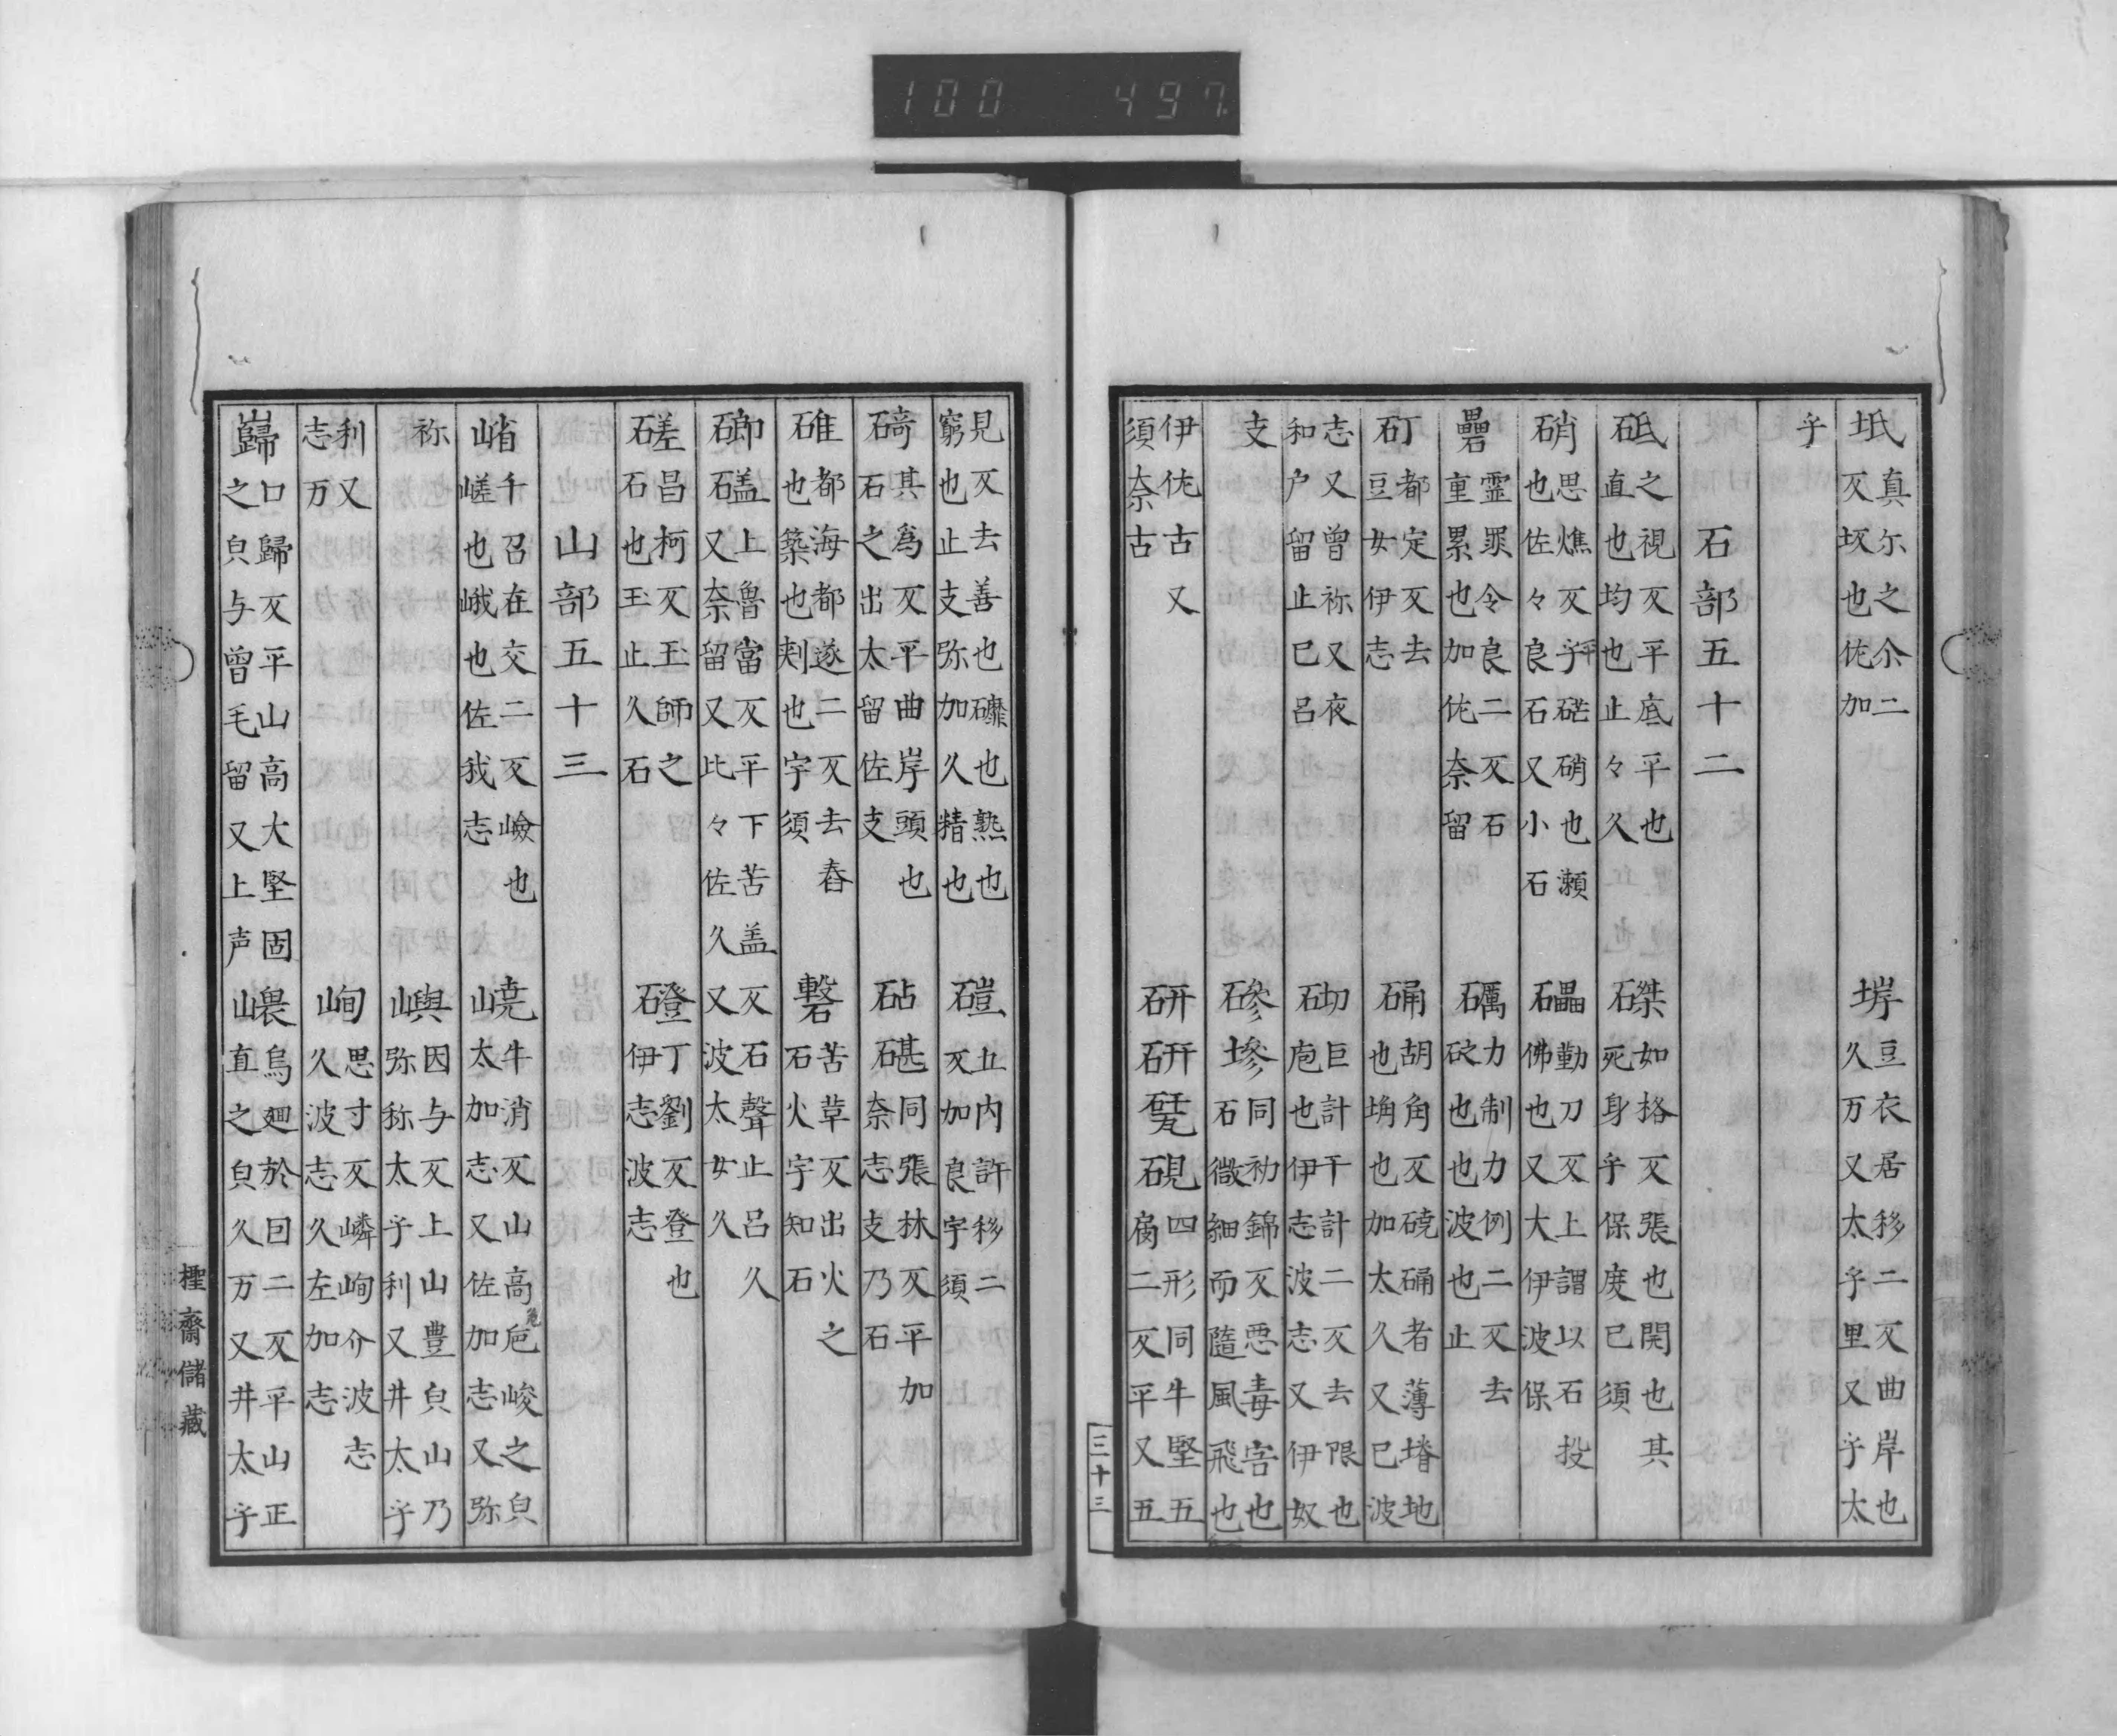 100 497
坻 真尓之尒二
反坂也佐加
垿 豆衣居移二反曲岸也
久万又太乎里又乎太
乎
石部五十二
砥 之視反平底平也
直也均也止々久
磔 如格反張也開也其
死身乎保度己須
硝 思燋反硭硝也瀬
也佐々良石又小石
礧 勤刀反上謂以石投
佛也又大伊波保
礨 霊罪令良二反石
重累也加佐奈留
礪 力制力例二反去
砅也也波也止
矴 都定反去
豆女伊志
确 胡角反磽确者薄塉地
也埆也加太久又己波
志又曾祢又夜
和户留止己呂
砌 巨計干計二反去限也
庖也伊志波志又伊奴
支
磣墋 同初錦反悪毒害也
石微細而随風飛也
伊佐古又
須奈古
研硏硯 四形同牛堅五
二反平又五
見反去善也礳也熟也
窮也止支弥加久精也
磑 五内許移二
反加良宇須
碕 其為反平曲岸頭也
石之出太留佐支
砧碪 同張林反平加
奈志支乃石
碓 都海都遂二反去舂
也築也剘也宇須
磬 苦草反出火之
石火宇知石
䃂礚 上魯當反平下苦盖反石聲止呂久
又奈留又比々佐久又波太女久
磋 昌柯反玉師之
石也玉止久石
磴 丁劉反登也
伊志波志
山部五十三
峭 千召在交二反嶮也
嵯也峨也佐我志
嶢 牛消反山高危峻之皃
太加志又佐加志又弥
祢
嶼 因与反上山豊皃山乃
弥祢太乎利又井太乎
利又
志万
峋 思寸反嶙峋介波志
久波志久左加志
巋 口歸反平山高大堅固
之皃与曾毛留又上声
嵔 烏廻於回二反平山正
直之皃久万又井太乎
三十三
檉齋儲藏